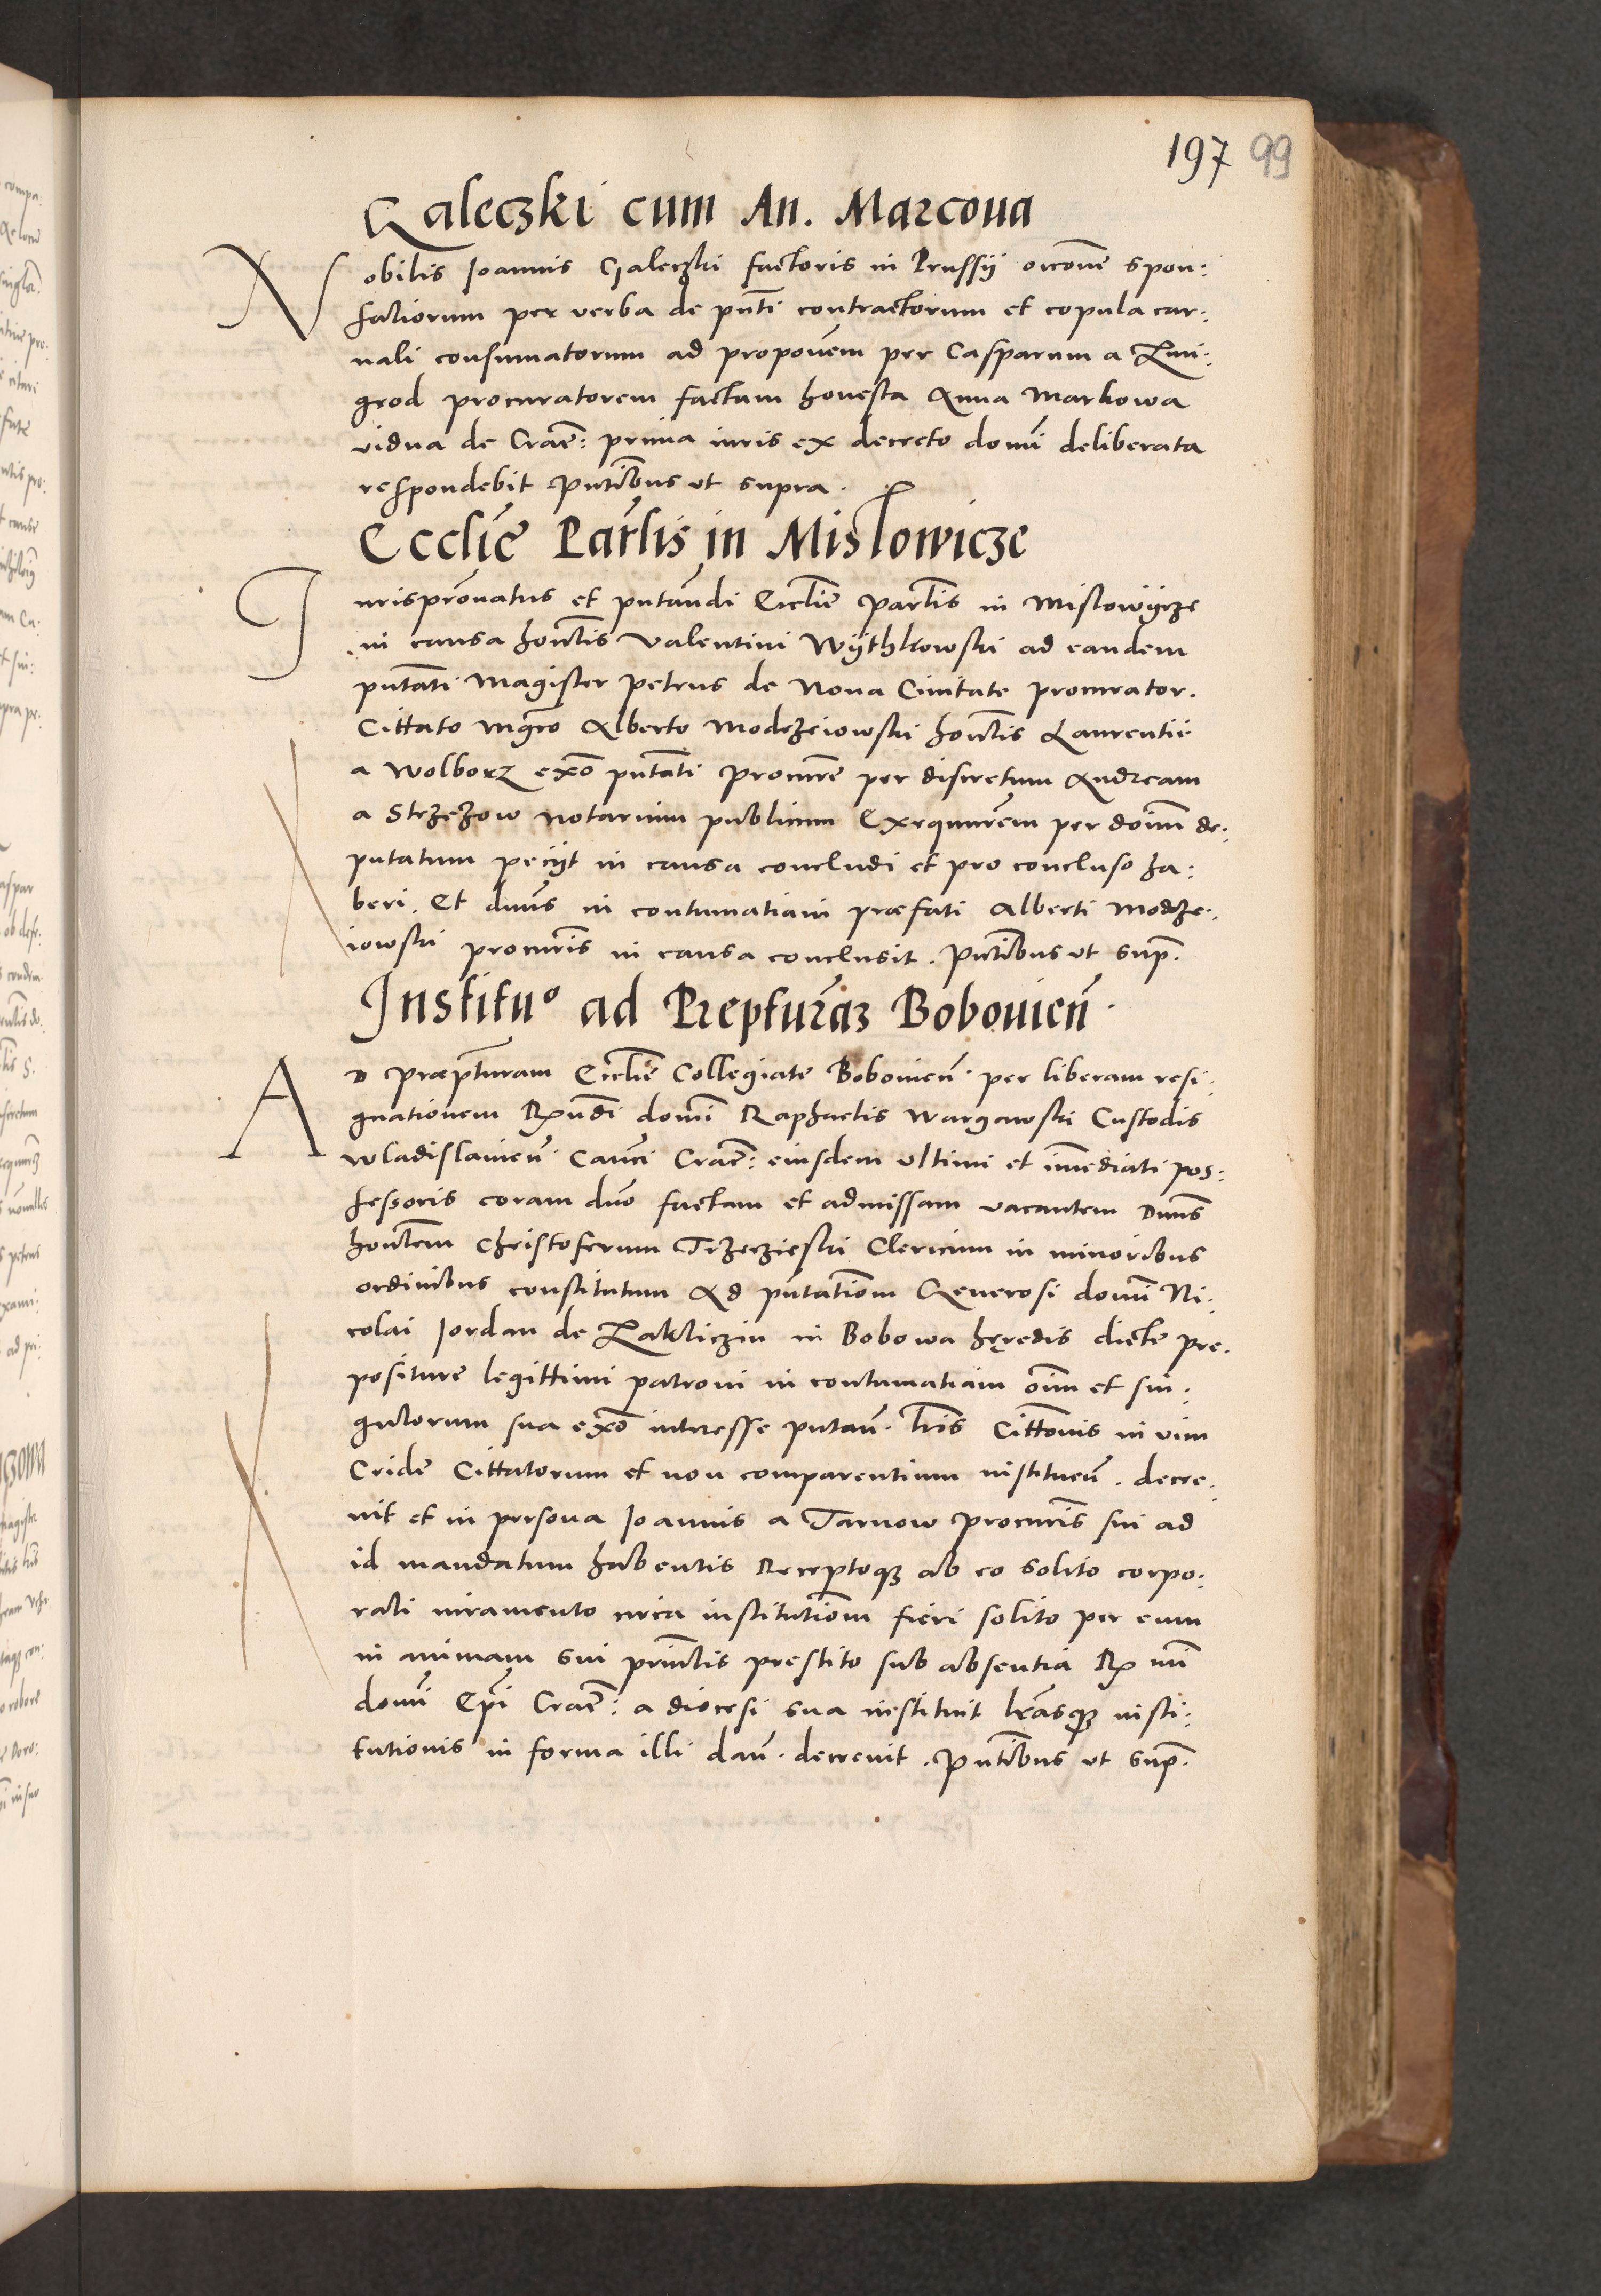 197 99
Galeczki cum An. Marcoua
Nobilis Joannis Galeczki factoris in Prussij occone spon:
saliorum per verba de pnti contractorum et copula car:
nali consumatorum ad proponem per Casparum a Zmi:
grod procuratorem factam honesta Anna Markowa
vidua de Crac: prima iuris ex decreto domi deliberata
respondebit pntibus ut supra.
Ecclie Parlis in Mislowicze
Jurispronatus et pntandi Ecclie parlis in Mislowijcze
in causa honlis Valentini Wijthkowski ad eandem
pntati Magister Petrus de Noua Ciuitate procurator.
Cittato mgro Alberto Modrzeiowski honlis Laurentii
a Wolborz exo pntati procure per discretum Andream
a Strzezow notarium publicum Exequurem per doim de:
putatum pecijt in causa concludi et pro concluso ha:
beri. Et dnus in contumatiam præfati Alberti Modrze:
iowski procuris in causa conclusit. Pntibus ut sup.
Institu° ad Prepturam Bobouien.
AD præpturam Ecclie Collegiate Bobouien. per liberam resi:
gnationem Rxndi domi Raphaelis Wargawski Custodis
Wladislauien. Canci Crac: eiusdem ultimi et immediati pos:
sessoris coram dno factam et admissam vacantem Dnus
honlem Christoferum Trzecziski Clericum in minoribus
ordinibus constitutum Ad pntationem Generosi domi Ni:
colai Jordan de Zakliczin in Bobowa hęredis dicte pre:
positure legittimi patroni in contumatiam oim et sin:
gulorum sua exo interesse putan. lris Cittonis in vim
Cride Cittatorum et non comparentium instituen. decre:
uit et in persona Joannis a Tarnow procuris sui ad
id mandatum habentis Receptoqz ab eo solito corpo:
rali iuramento circa institutionem fieri solito per eum
in animam sui prinlis prestito sub absentia Rx mi
domi Epi Crac: a diocesi sua instituit lrasqz insti:
tutionis in forma illi dan. decreuit. Pntibus ut sup.